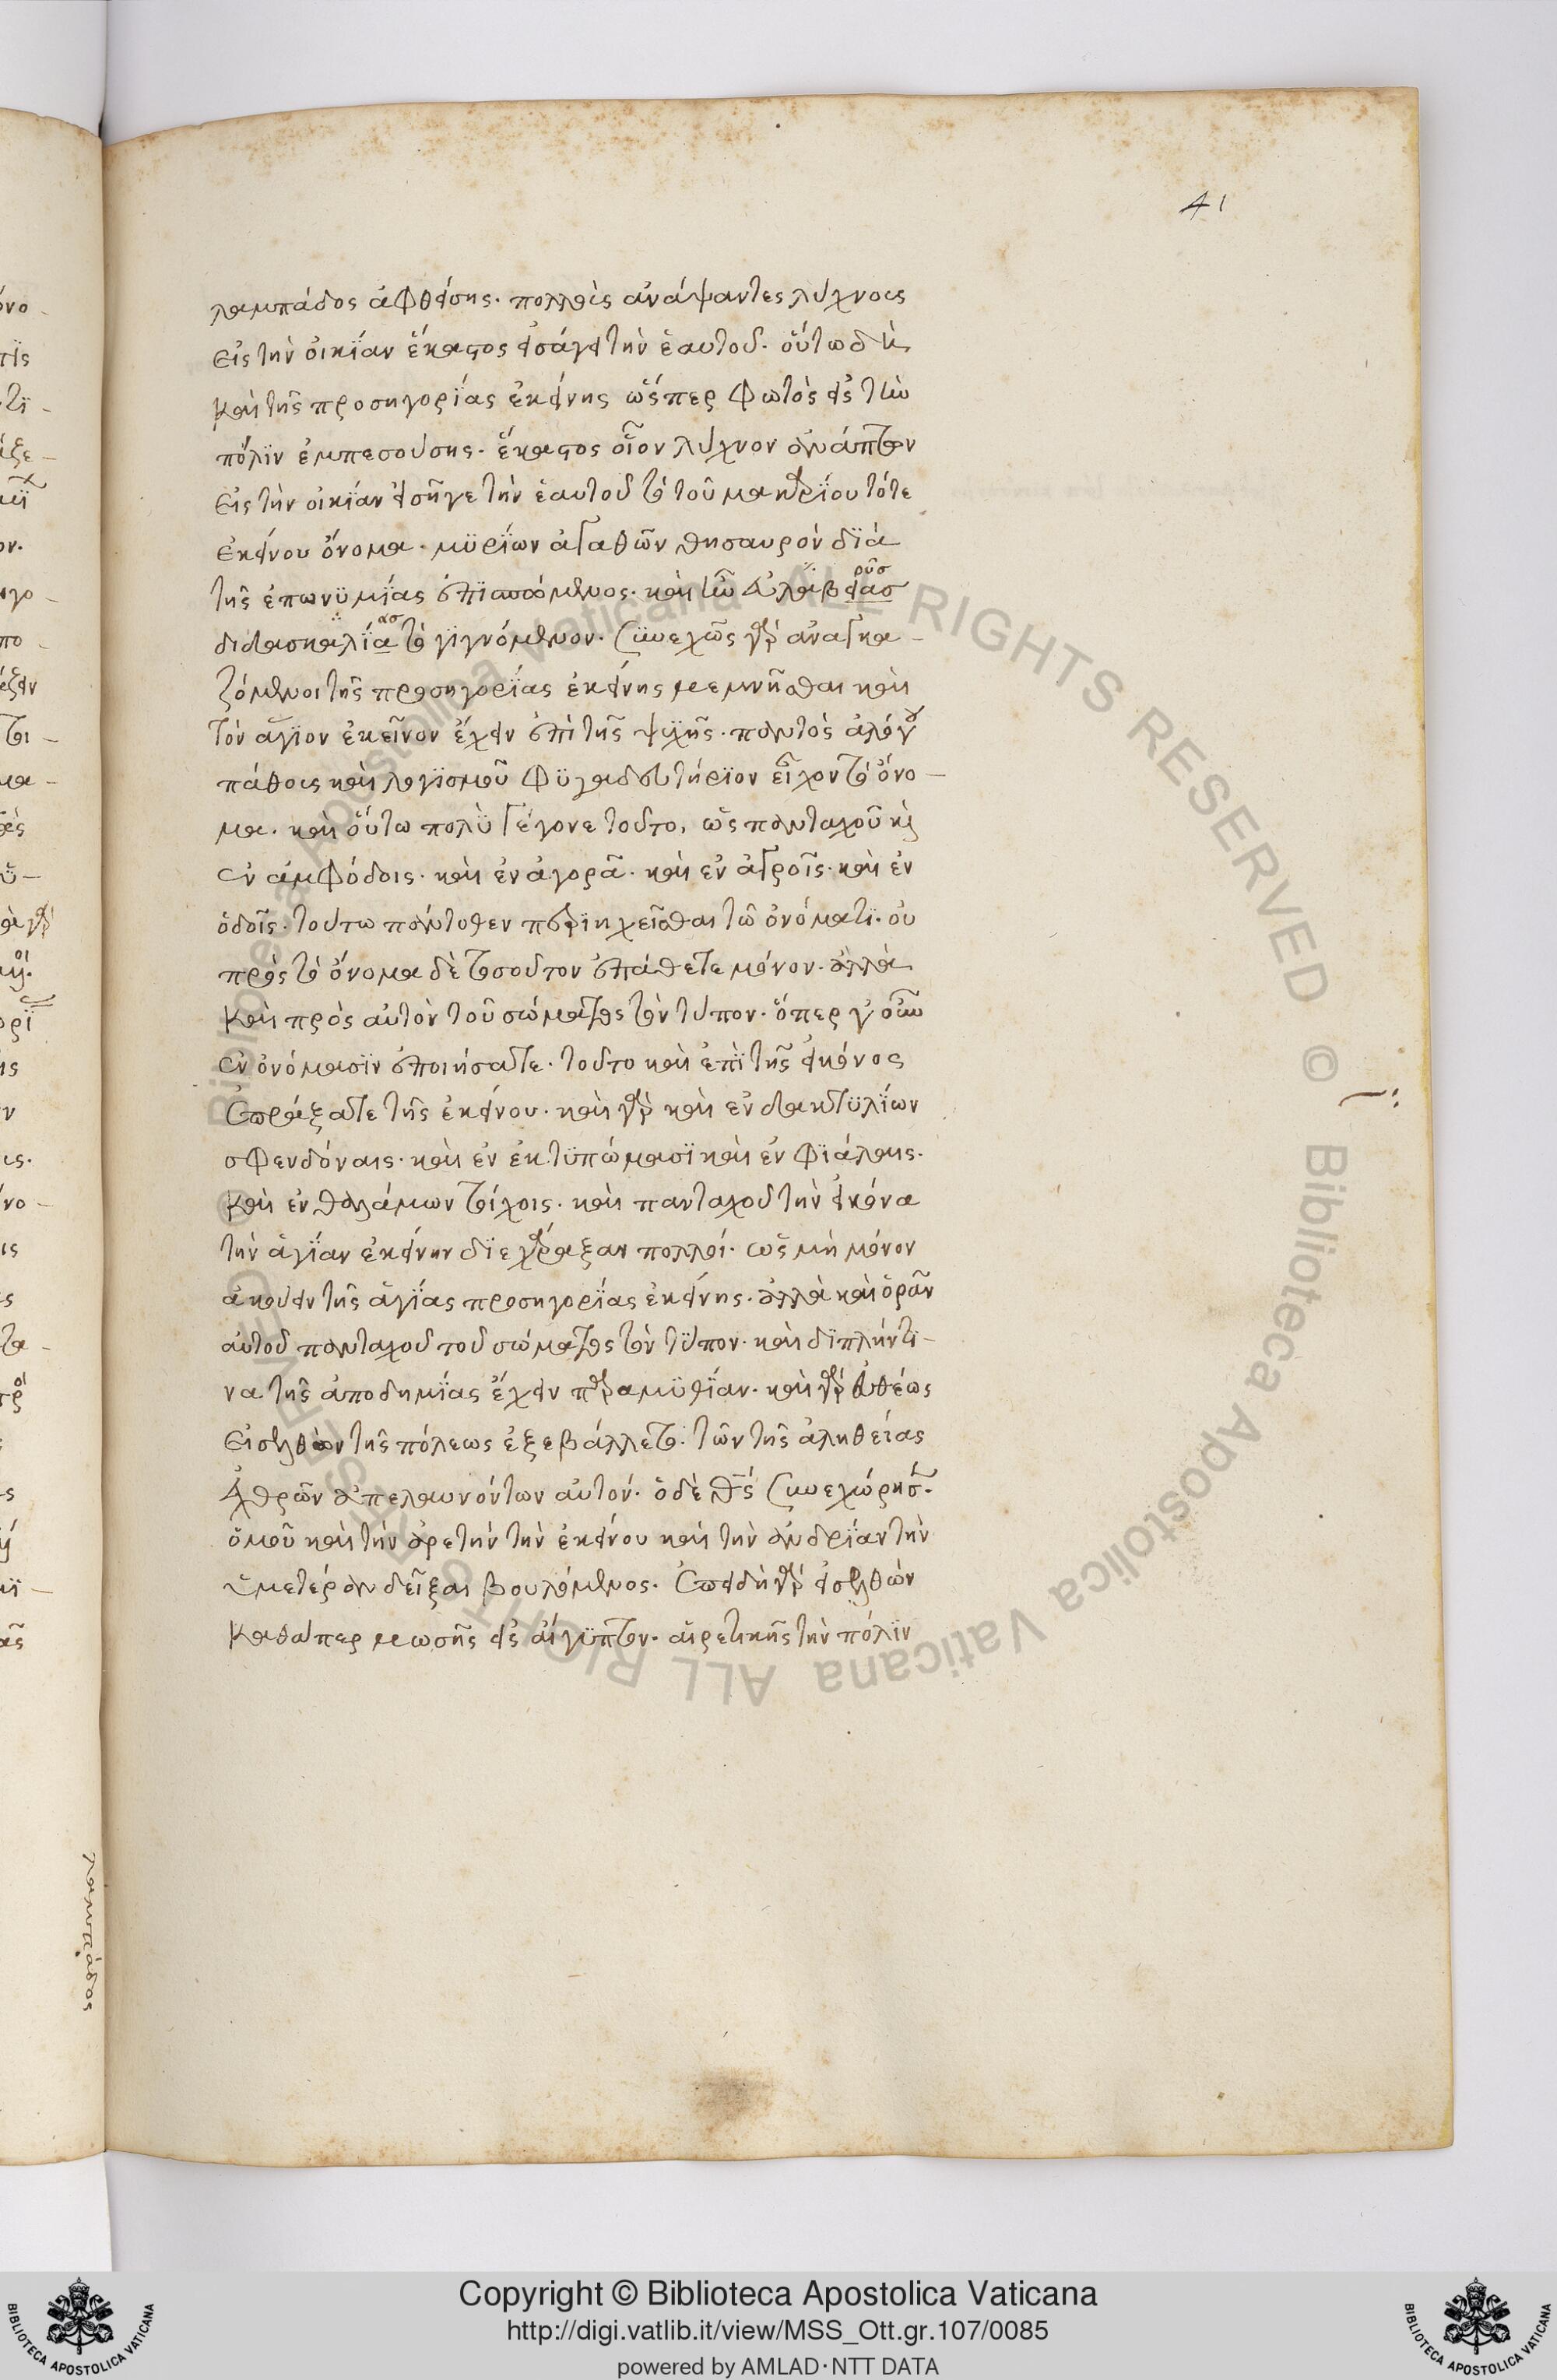 41
λαμπάδος ἀφθείσης. πολλοὺς ἀνάψαντες λύχνους
εἰς τὴν οἰκΐαν ἕκαστος εἰσάγει τὴν ἑαυτοῦ. οὕτω δὴ
καὶ τῆς προσηγορΐας ἐκείνης ὥσπερ φωτὸς εἰς τὴν
πόλϊν ἐμπεσούσης. ἕκαστος οἷον λύχνον ἀνάπτων
εἰς τὴν οἰκΐαν εἰσῆγε τὴν ἑαυτοῦ τὸ τοῦ μακαρΐου τότε
ἐκείνου ὄνομα. μϋρΐων ἀγαθῶν θησαυρὸν δϊὰ
τῆς ἐπωνϋμΐας ἐπϊσπώμενος. καὶ ἦν εὐλαβείας ρῦσ
διδασκαλΐα ασ τὸ γϊγνόμενον. συνεχῶς γὰρ ἀναγκα-
ζόμενοι τῆς προσηγορΐας ἐκείνης μεμνῆσθαι καὶ
τὸν ἅγϊον ἐκεῖνον ἔχειν ἐπὶ τῆς ψυχῆς. παντὸς ἀλόγου
πάθους καὶ λογϊσμοῦ φϋγαδευτήρϊον εἶχον τὸ ὄνο-
μα. καὶ οὕτω πολϋ γέγονε τοῦτο, ὡς πανταχοῦ καὶ
ἐν ἀμφόδοις. καὶ ἐν ἀγορᾶ. καὶ ἐν ἀγροῖς. καὶ ἐν
ὁδοῖς. τούτω πάντοθεν περϊηχεῖσθαι τῶ ὀνόματϊ. οὐ
πρὸς τὸ ὄνομα δὲ τοσοῦτον ἐπάθετε μόνον. ἀλλὰ
καὶ πρὸς αὐτὸν τοῦ σώματος τὸν τύπον. ὅπερ γ' οὖν
ἐν ὀνόμασϊν ἐποιήσατε. τοῦτο καὶ ἐπϊ τῆς εἰκόνος
ἐπράξατε τῆς ἐκείνου. καὶ γὰρ καὶ ἐν δακτϋλΐων
σφενδόναις. καὶ ἐν ἐκτϋπώμασϊ καὶ ἐν φϊάλαις.
καὶ ἐν θαλάμων τοίχοις. καὶ πανταχοῦ τὴν εἰκόνα
τὴν ἁγΐαν ἐκείνην δϊεχάραξαν πολλοί. ὡς μὴ μόνον
ἀκούειν τῆς ἁγΐας προσηγορΐας ἐκείνης. ἀλλὰ καὶ ὁρᾶν
αὐτοῦ πανταχοῦ τοῦ σώματος τὸν τϋπον. καὶ δϊπλήν τϊ-
να τῆς ἀποδημΐας ἔχειν παραμϋθΐαν. καὶ γὰρ εὐθέως
εἰσελθὼν τῆς πόλεως ἐξεβάλλετο. τῶν τῆς ἀληθείας
ἐχθρῶν ἀπελαυνόντων αὐτόν. ὁ δὲ θς συνεχώρησε.
ὁμοῦ καὶ τὴν ἀρετὴν τὴν ἐκείνου καὶ τὴν ἀνδρΐαν τὴν
ὑμετέραν δεῖξαι βουλόμενος. ἐπειδὴ γὰρ εἰσελθὼν
καθάπερ μωσῆς εἰς αἴγϋπτον. αἱρετικῆς τὴν πόλϊν
λαμπάδος
Copyright © Biblioteca Apostolica Vaticana
http://digi.vatlib.it/view/MSS_Ott.gr.107/0085
powered by AMLAD·NTT DATA